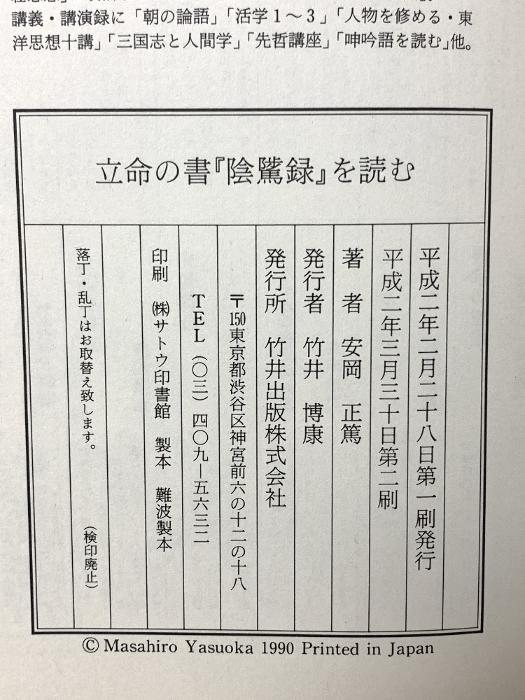 講義・講演録に「朝の論語」「活学1～3」「人物を修める・東
洋思想十講」「三国志と人間学」「先哲講座」「呻吟語を読む」他。
立命の書『陰騭録』を読む
平成二年二月二十八日第一刷発行
平成二年三月三十日第二刷
著者 安岡 正篤
発行者 竹井 博康
発行所 竹井出版株式会社
〒150東京都渋谷区神宮前六の十二の十八
TEL（〇三）四〇九―五六三二
印刷 ㈱サトウ印書館 製本 難波製本
落丁・乱丁はお取替え致します。 （検印廃止）
© Masahiro Yasuoka 1990 Printed in Japan